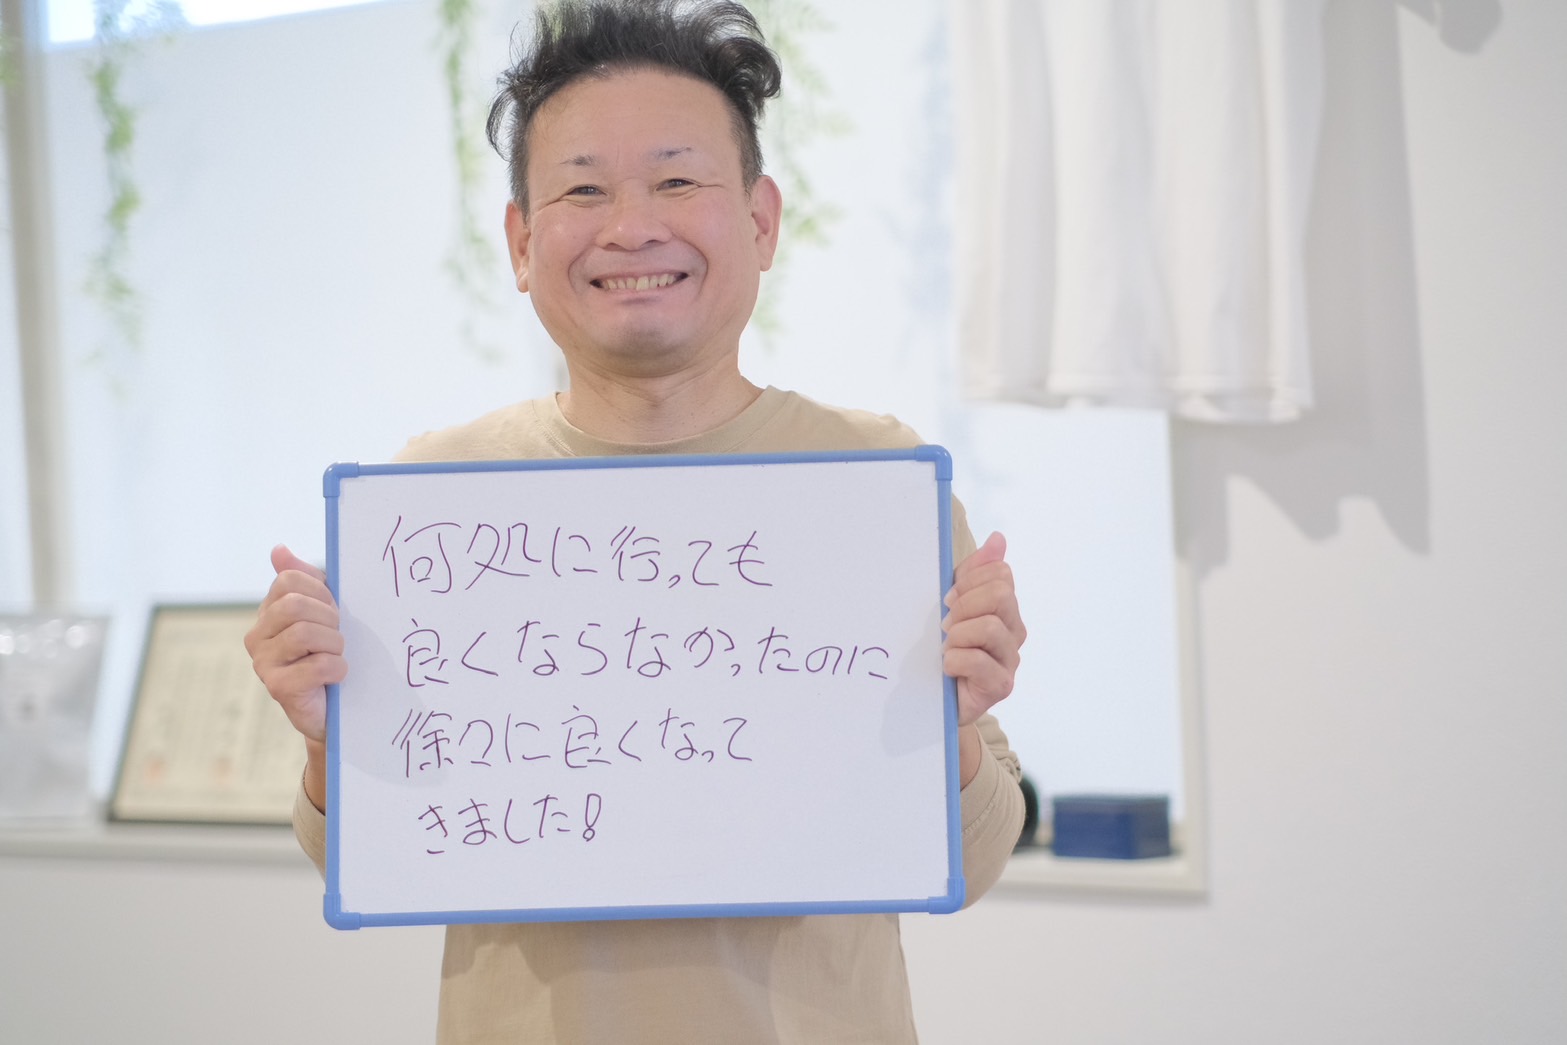 何処に行っても
良くならなかったのに
徐々に良くなって
きました!